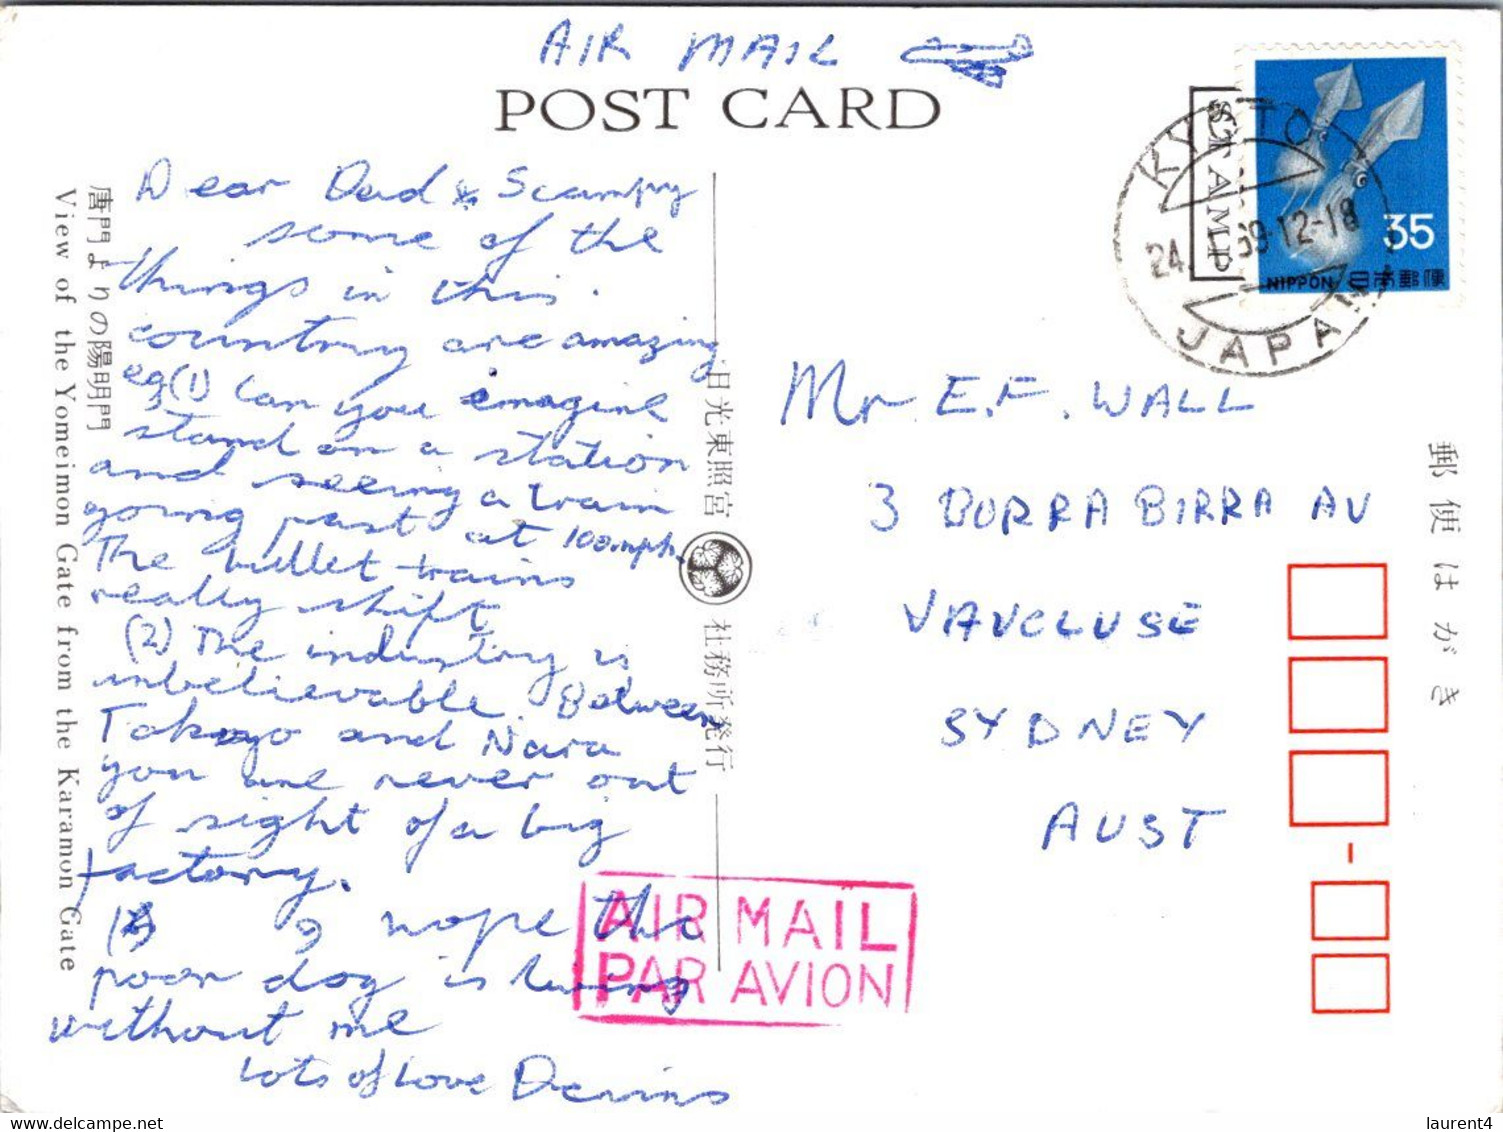 AIR MAIL
POST CARD
STAMP
KYOTO
24. 69.12-18
JAPAN
35
NIPPON 日本郵便
Dear Dad & Scampy
some of the
things in this
country are amazing
eg (1) Can you imagine
stand on a station
and seeing a train
going past at 100mph.
The bullet trains
really shift
(2) The industry is
unbelievable. Between
Tokyo and Nara
you are never out
of sight of a big
factory.
hope the
poor dog is living
without me
Lots of Love
Mr E.F. WALL
3 BURRA BIRRA AV
VAUCLUSE
SYDNEY
AUST
AIR MAIL
PAR AVION
唐門よりの陽明門
View of the Yomeimon Gate from the Karamon Gate
日光東照宮
社務所発行
郵便はがき
laurent4